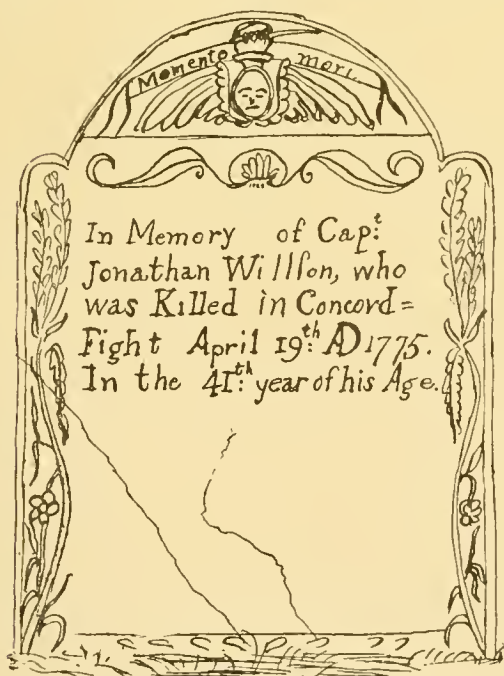 Momento mori.
In Memory of Capt:
Jonathan Willſon, who
was Killed in Concord=
Fight April 19th: AD 1775.
In the 41:th year of his Age.